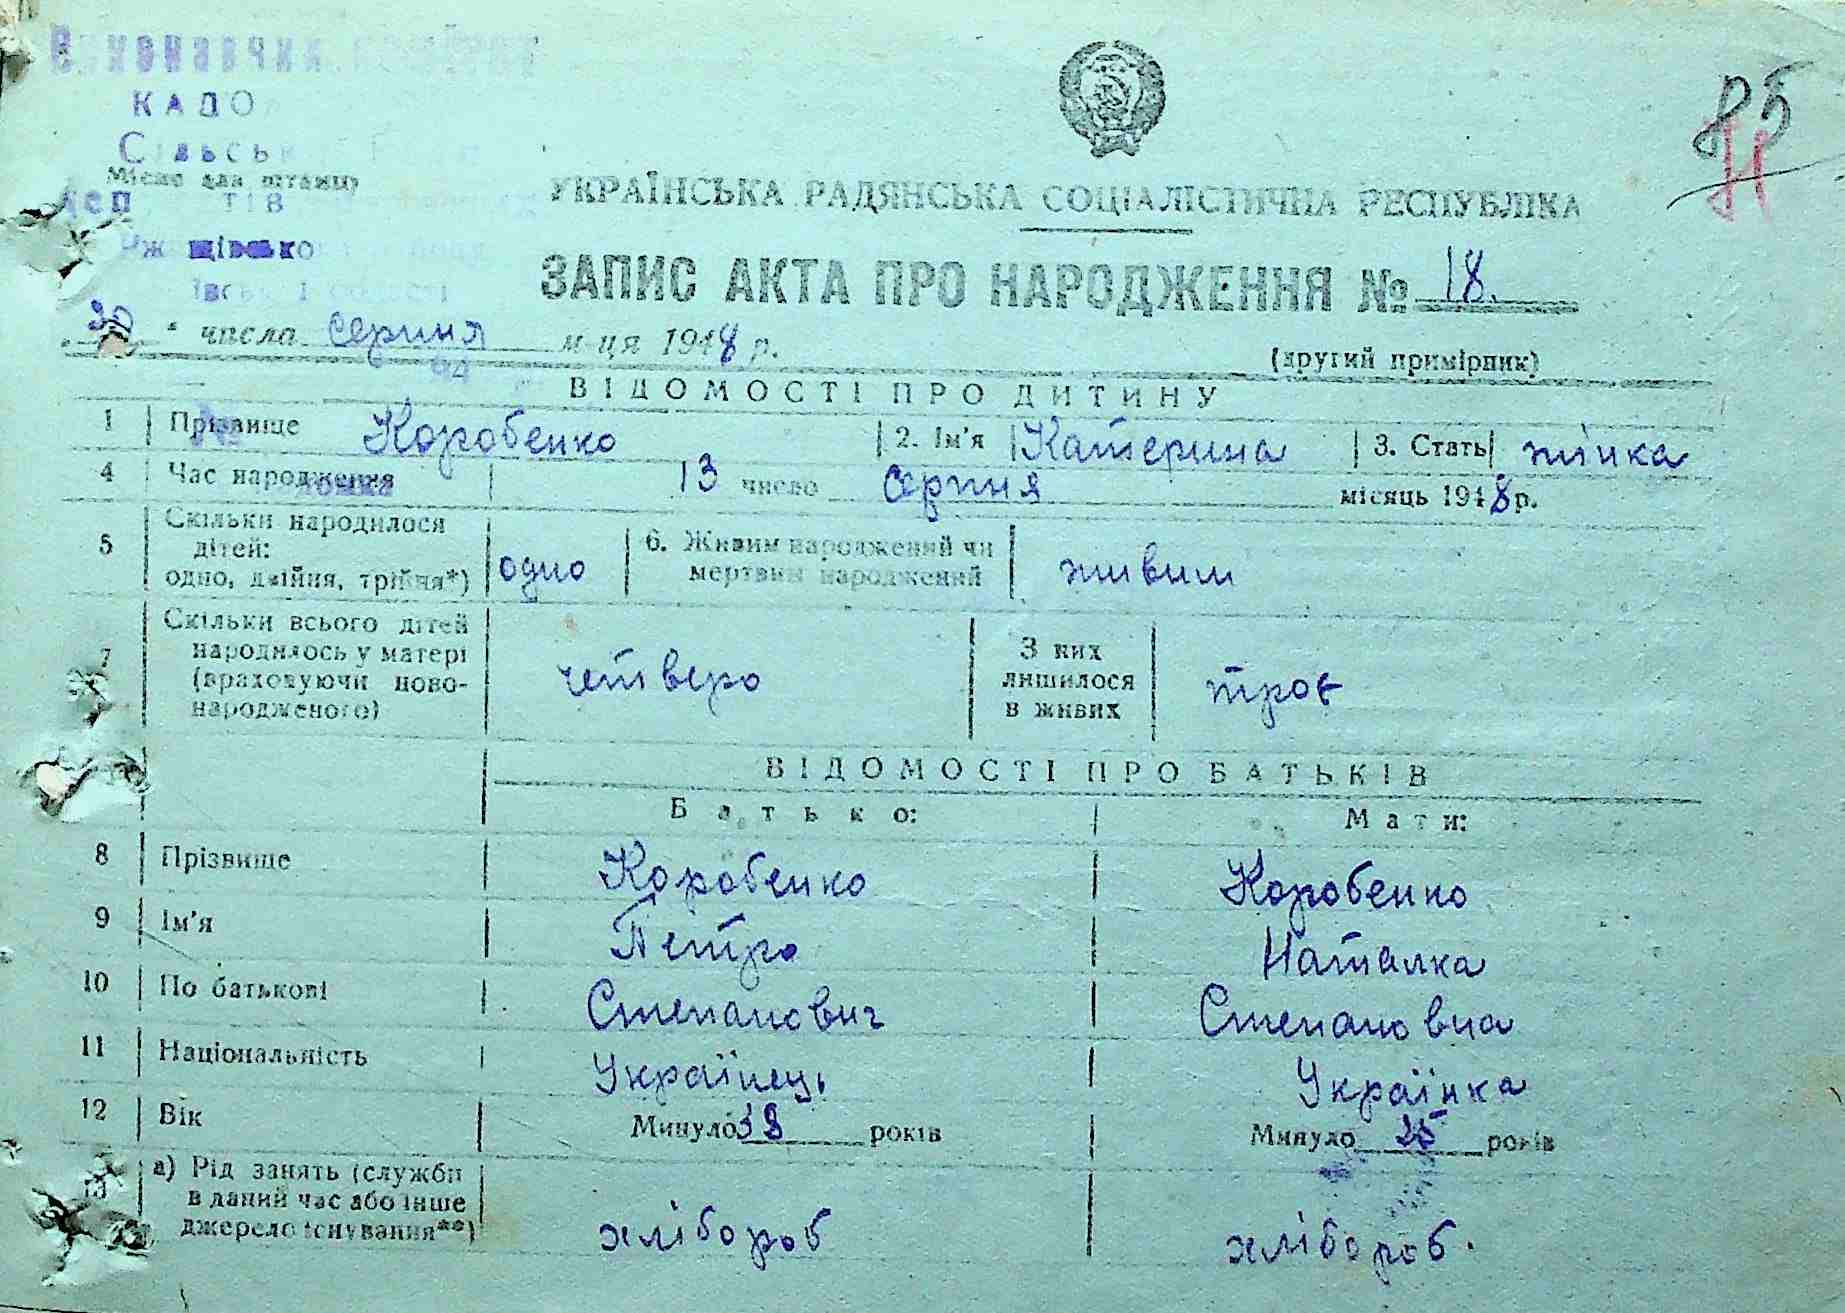 Виконавчий
КАДО
Сільськ
Місце для штампу
деп тів
Рж щівсько
85
Н
УКРАЇНСЬКА РАДЯНСЬКА СОЦІАЛІСТИЧНА РЕСПУБЛІКА
ЗАПИС АКТА ПРО НАРОДЖЕННЯ № 18.
20 " числа серпня м-ця 1948 р.
(другий примірник)
ВІДОМОСТІ ПРО ДИТИНУ
1 Прізвище Коробенко 2. Ім'я Катерина 3. Стать жінка
4 Час народження 13 число серпня місяць 1948 р.
5 Скільки народилося
дітей:
одно, двійня, трійня*) одно
6. Живим народжений чи
мертвим народжений живим
7 Скільки всього дітей
народилось у матері
(враховуючи ново-
народженого) четверо
З них
лишилося
в живих троє
ВІДОМОСТІ ПРО БАТЬКІВ
Батько: Мати:
8 Прізвище Коробенко Коробенко
9 Ім'я Петро Наталка
10 По батькові Степанович Степановна
11 Національність Українець Українка
12 Вік Минуло 38 років Минуло 35 років
13 а) Рід занять (служби
в даний час або інше
джерело існування**) хлібороб хлібороб.